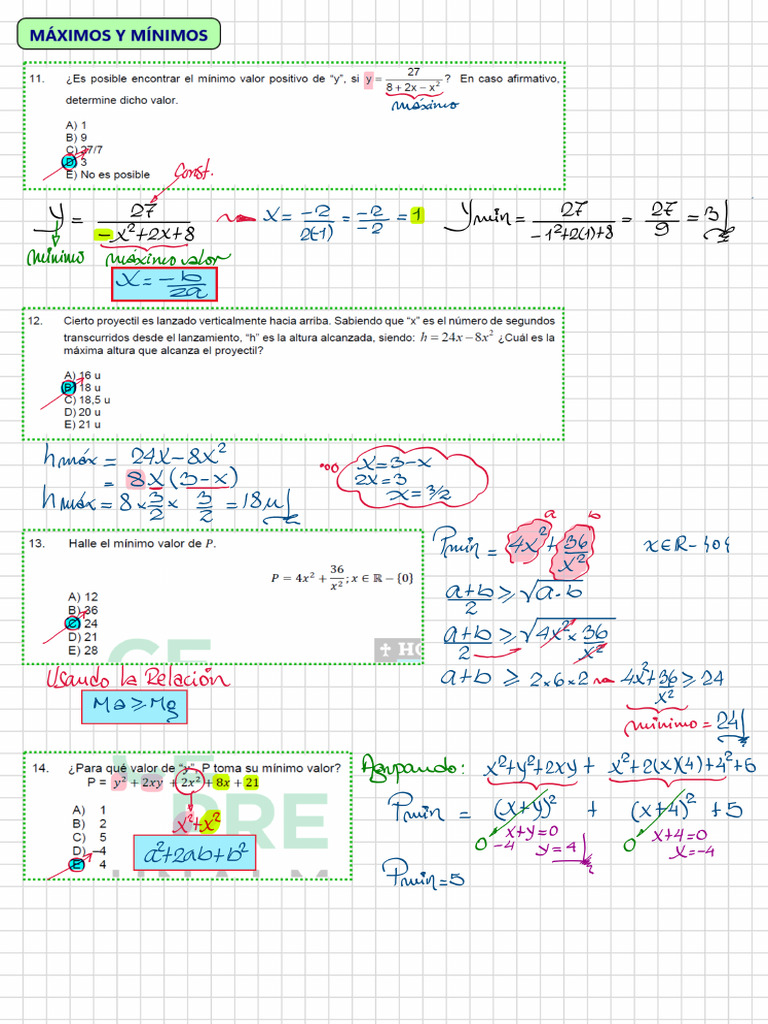 MÁXIMOS Y MÍNIMOS
11. ¿Es posible encontrar el mínimo valor positivo de "y", si y = 27/(8 + 2x – x²)? En caso afirmativo,
determine dicho valor.
máximo
A) 1
B) 9
C) 27/7
D) 3
E) No es posible
const.
y = 27/(-x²+2x+8)
x = -2/2(-1) = -2/-2 = 1
ymin = 27/(-1²+2(1)+8) = 27/9 = 3
mínimo
máximo valor
x = -b/2a
12. Cierto proyectil es lanzado verticalmente hacia arriba. Sabiendo que "x" es el número de segundos
transcurridos desde el lanzamiento, "h" es la altura alcanzada, siendo: h = 24x – 8x² ¿Cuál es la
máxima altura que alcanza el proyectil?
A) 16 u
B) 18 u
C) 18,5 u
D) 20 u
E) 21 u
hmáx = 24x-8x²
= 8x(3-x)
hmáx = 8 × 3/2 × 3/2 = 18u
x = 3-x
2x = 3
x = 3/2
13. Halle el mínimo valor de P.
P = 4x² + 36/x²; x ∈ ℝ – {0}
A) 12
B) 36
C) 24
D) 21
E) 28
CE
HO
Usando la Relación
Ma ≥ Mg
a b
Pmin = 4x² + 36/x² x∈R-{0}
(a+b)/2 ≥ √(a·b)
(a+b)/2 ≥ √(4x² × 36/x²)
a+b ≥ 2×6×2 4x²+36/x² ≥ 24
mínimo = 24
14. ¿Para qué valor de "y", P toma su mínimo valor?
P = y² + 2xy + 2x² + 8x + 21
A) 1
B) 2
C) 5
D) –4
E) 4
x²+x²
a²+2ab+b²
PRE
Agrupando: x²+y²+2xy + x²+2(x)(4)+4²+5
Pmin = (x+y)² + (x+4)² +5
0 x+y=0 0 x+4=0
-4 y=4 x=-4
Pmin=5